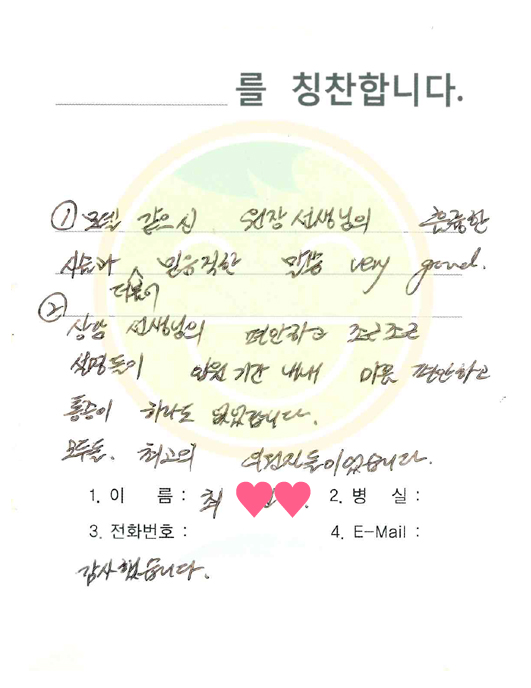 를 칭찬합니다.
① 모델 같으신 원장 선생님의 훌륭한
시술과 더불어 믿음직한 말씀 very good.
② 상담 선생님의 편안하고 조근조근
설명듣기 입원 기간 내내 마음 편안하고
통증이 하나도 없었습니다.
모두들. 최고의 여러분들이었습니다.
1. 이 름 : 최 2. 병 실 :
3. 전화번호 : 4. E-Mail :
감사했습니다.